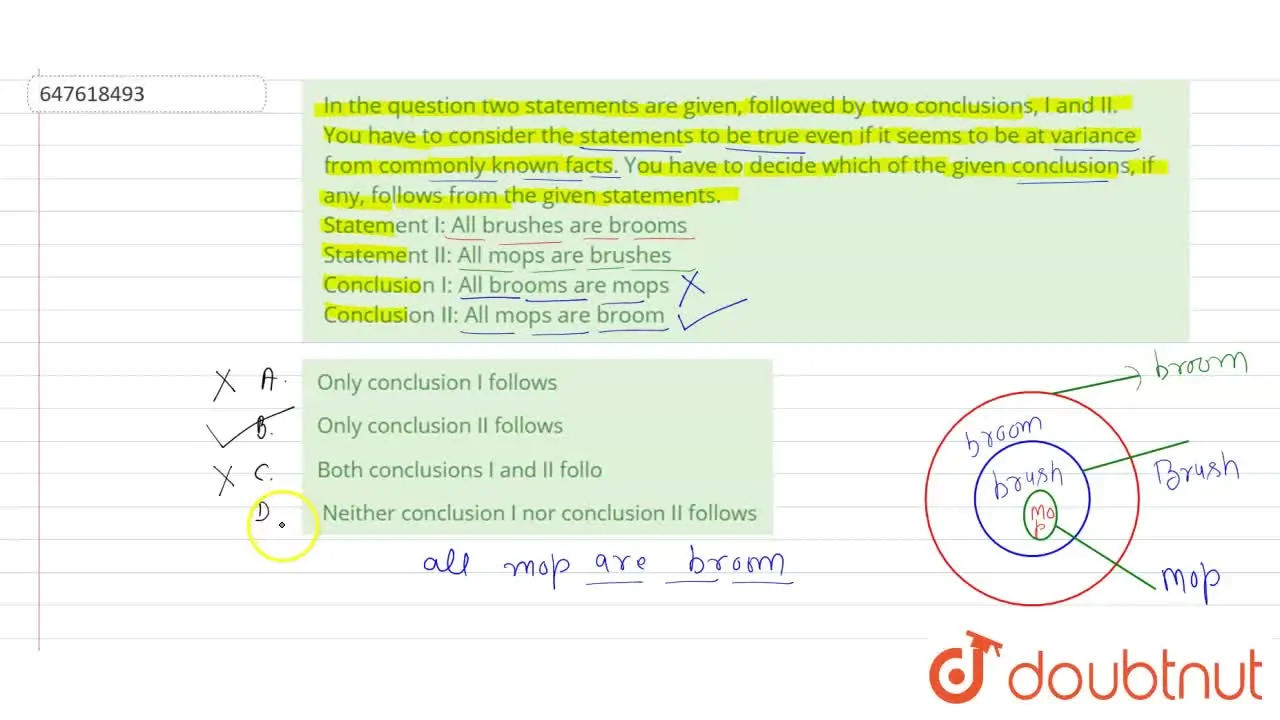 647618493
In the question two statements are given, followed by two conclusions, I and II.
You have to consider the statements to be true even if it seems to be at variance
from commonly known facts. You have to decide which of the given conclusions, if
any, follows from the given statements.
Statement I: All brushes are brooms
Statement II: All mops are brushes
Conclusion I: All brooms are mops
Conclusion II: All mops are broom
A. Only conclusion I follows
B. Only conclusion II follows
C. Both conclusions I and II follo
D. Neither conclusion I nor conclusion II follows
all mop are broom
broom
broom
brush
Brush
Mop
mop
doubtnut